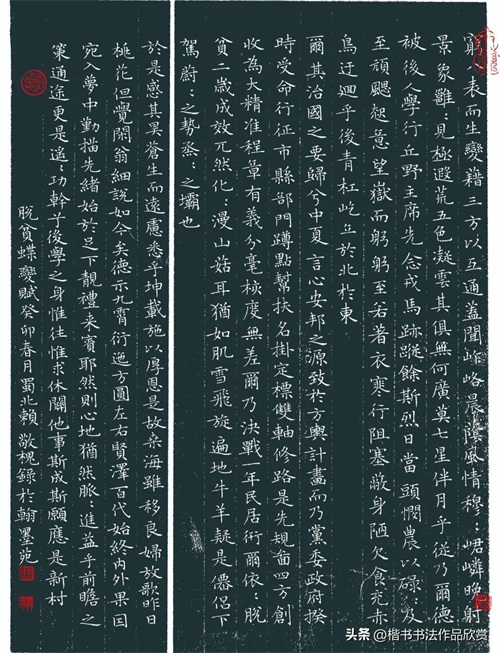 窮、表而生變藉三方以互通蓋聞峰峪晨陰風情穆 峮嶙晚射
景象雖：見極遐荒五色凝雲其俱無何廣莫七星伴月乎從乃爾德
被後人學行丘野主席先念戎馬跡蹤餘斯烈日當頭憫農以碌：及
至頑颸起意望嶽而躬：躬至若著衣寒行阻塞敝身陋欠食充赤
烏迂迴乎後青杠屹立於北於東
爾其治國之要歸兮中夏言心安邦之源致於方輿計畫而乃黨委政府揆
時受命行征市縣部門蹲點幫扶名掛定標雙軸修路是先規畫四方創
收為大精准程章有義分毫極度無差爾乃決戰一年民居術爾依：脫
貧二歲成效兀然化：漫山菇耳猶如肌雪飛旋遍地牛羊疑是僊侶下
駕蔚：之勢烝：之壩也
於是感其昊蒼生而遠慮悉乎坤載施以厚恩是故桑海雖移良婦放歌昨日
桃花但覺關翁細說如今矣德示九霄衍迤方圓左右賢澤百代始終內外果因
宛入夢中勤描先緒始於足下靚禮来賓耶然則心地猶然脈：進益乎前瞻之
策通途更是遙：功幹乎後學之身惟往惟求休關他事斯成斯願應是新村
脫貧蝶變賦癸卯春月蜀北賴敬槐錄於翰墨苑
头条 @楷书书法作品欣赏